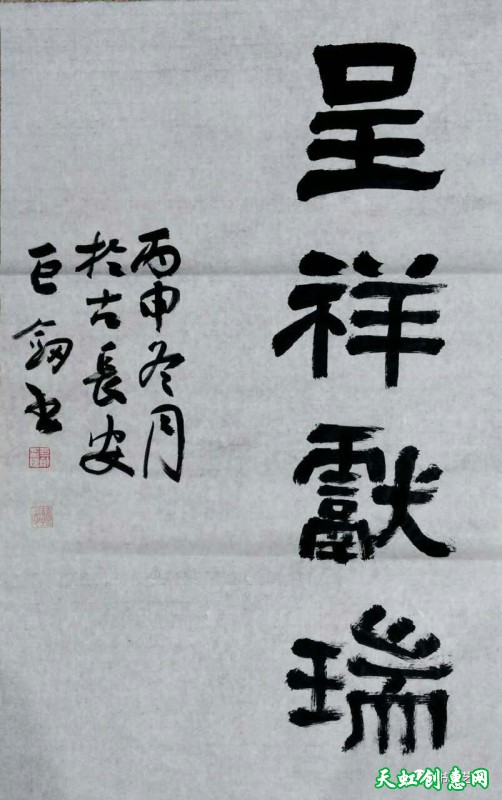 呈祥獻瑞
丙申冬月
於古長安
巨劔書
天虹创惠网